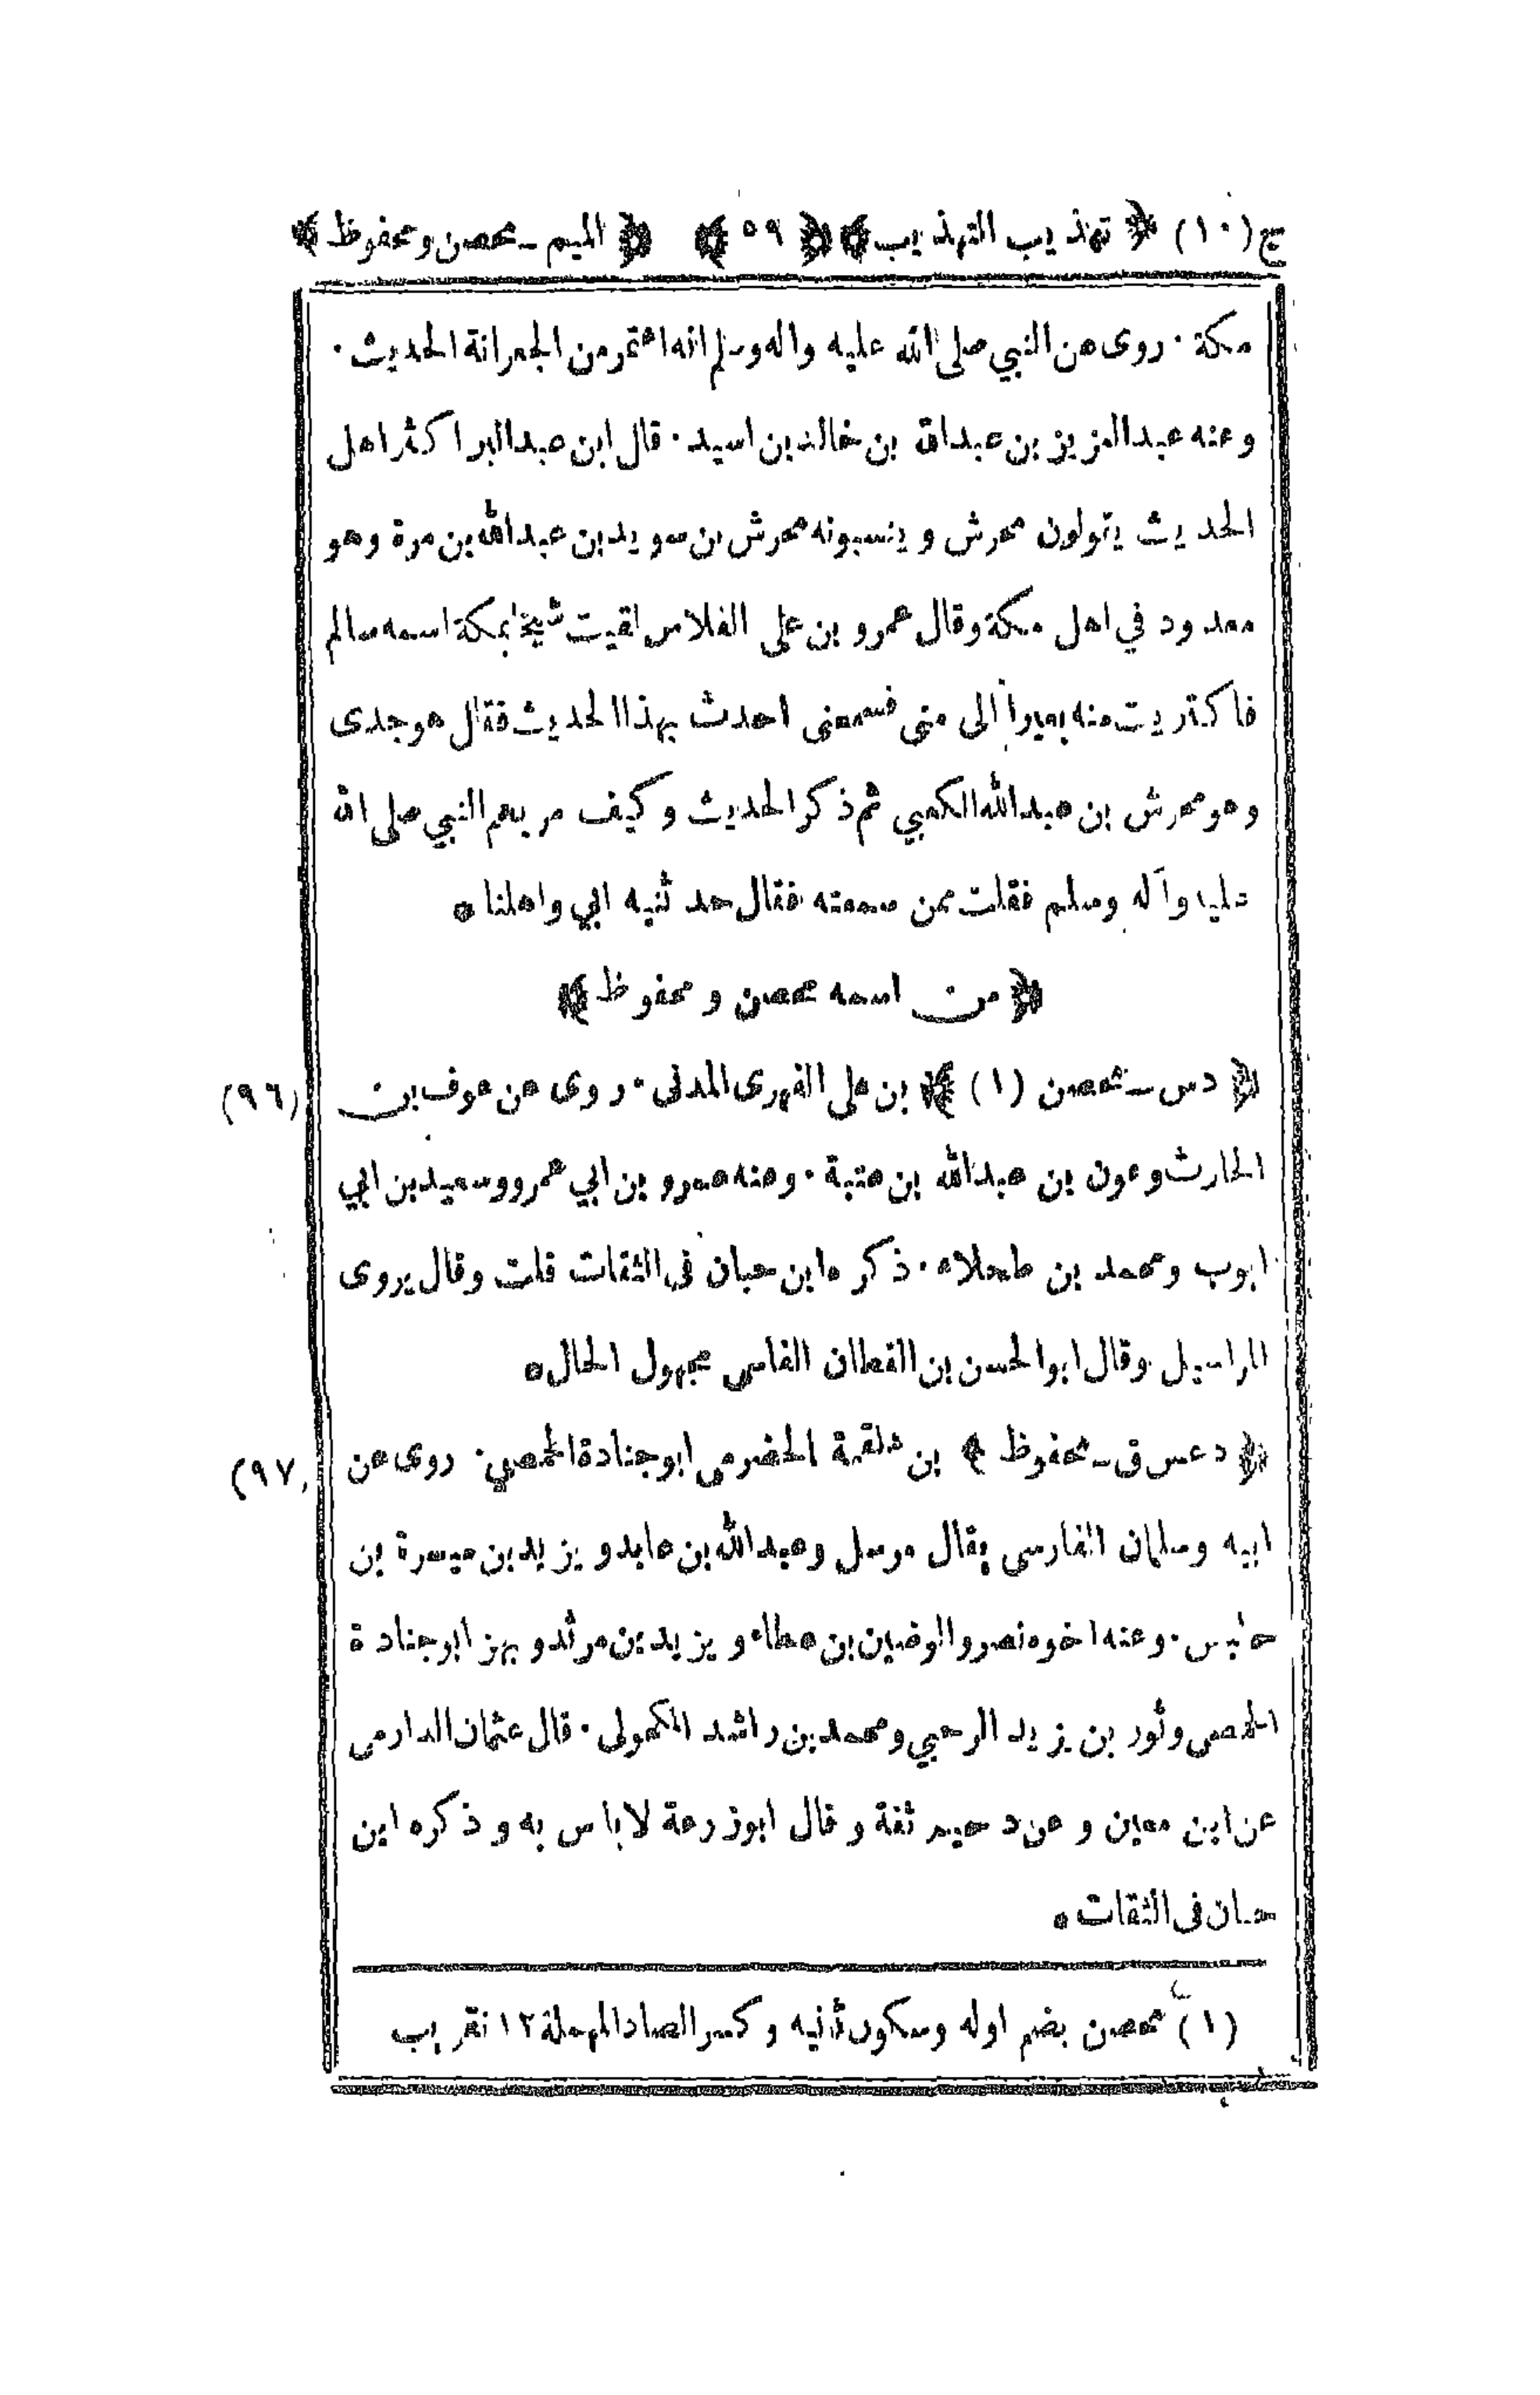 ج (١٠) ﴿ تهذيب التهذيب ﴾ ﴿ ٥٩ ﴾ ﴿ الميم ـ محصن ومحفوظ ﴾
مكة . روى عن النبي صلى الله عليه واله وسلم انه اعتمر من الجعرانة الحديث .
وعنه عبد العزيز بن عبد الله بن خالد بن اسيد . قال ابن عبد البر اكثر اهل
الحديث يقولون محرش وينسبونه محرش بن سويد بن عبد الله بن مرة وهو
معدود في اهل مكة وقال عمرو بن على الفلاس لقيت شيخا بمكة اسمه سالم
فاكتريت منه بعيرا الى منى فسمعنى احدث بهذا الحديث فقال هو جدى
وهو محرش بن عبد الله الكعبي ثم ذكر الحديث وكيف مر بهم النبي صلى الله
عليه وآله وسلم فقلت ممن سمعته فقال حدثنيه ابي واهلنا ه
﴿ من اسمه محصن ومحفوظ ﴾
﴿ دس ـ محصن (١) ﴾ بن على الفهرى المدنى . روى عن عوف بن (٩٦)
الحارث وعون بن عبد الله بن عتبة . وعنه عمرو بن ابي عمرو وسعيد بن ابي
ايوب ومحمد بن طحلاء . ذكره ابن حبان فى الثقات قلت وقال يروى
المراسيل وقال ابو الحسن بن القطان الفاسى مجهول الحال ه
﴿ د عس ق ـ محفوظ ﴾ بن علقمة الحضرمى ابو جنادة الحمصي . روى عن (٩٧)
ابيه وسلمان الفارسى يقال مرسل وعبد الله بن عايد ويزيد بن ميسرة بن
حلبس . وعنه اخوه نصر والوضين بن عطاء ويزيد بن مرثد وبهز ابو جنادة
الحمصى وثور بن يزيد الرحبي ومحمد بن راشد المكحولى . قال عثمان الدارمى
عن ابن معين وعن دحيم ثقة وقال ابو زرعة لا باس به وذكره ابن
حبان فى الثقات ه
(١) محصن بضم اوله وسكون ثانيه وكسر الصاد المهملة ١٢ تقريب